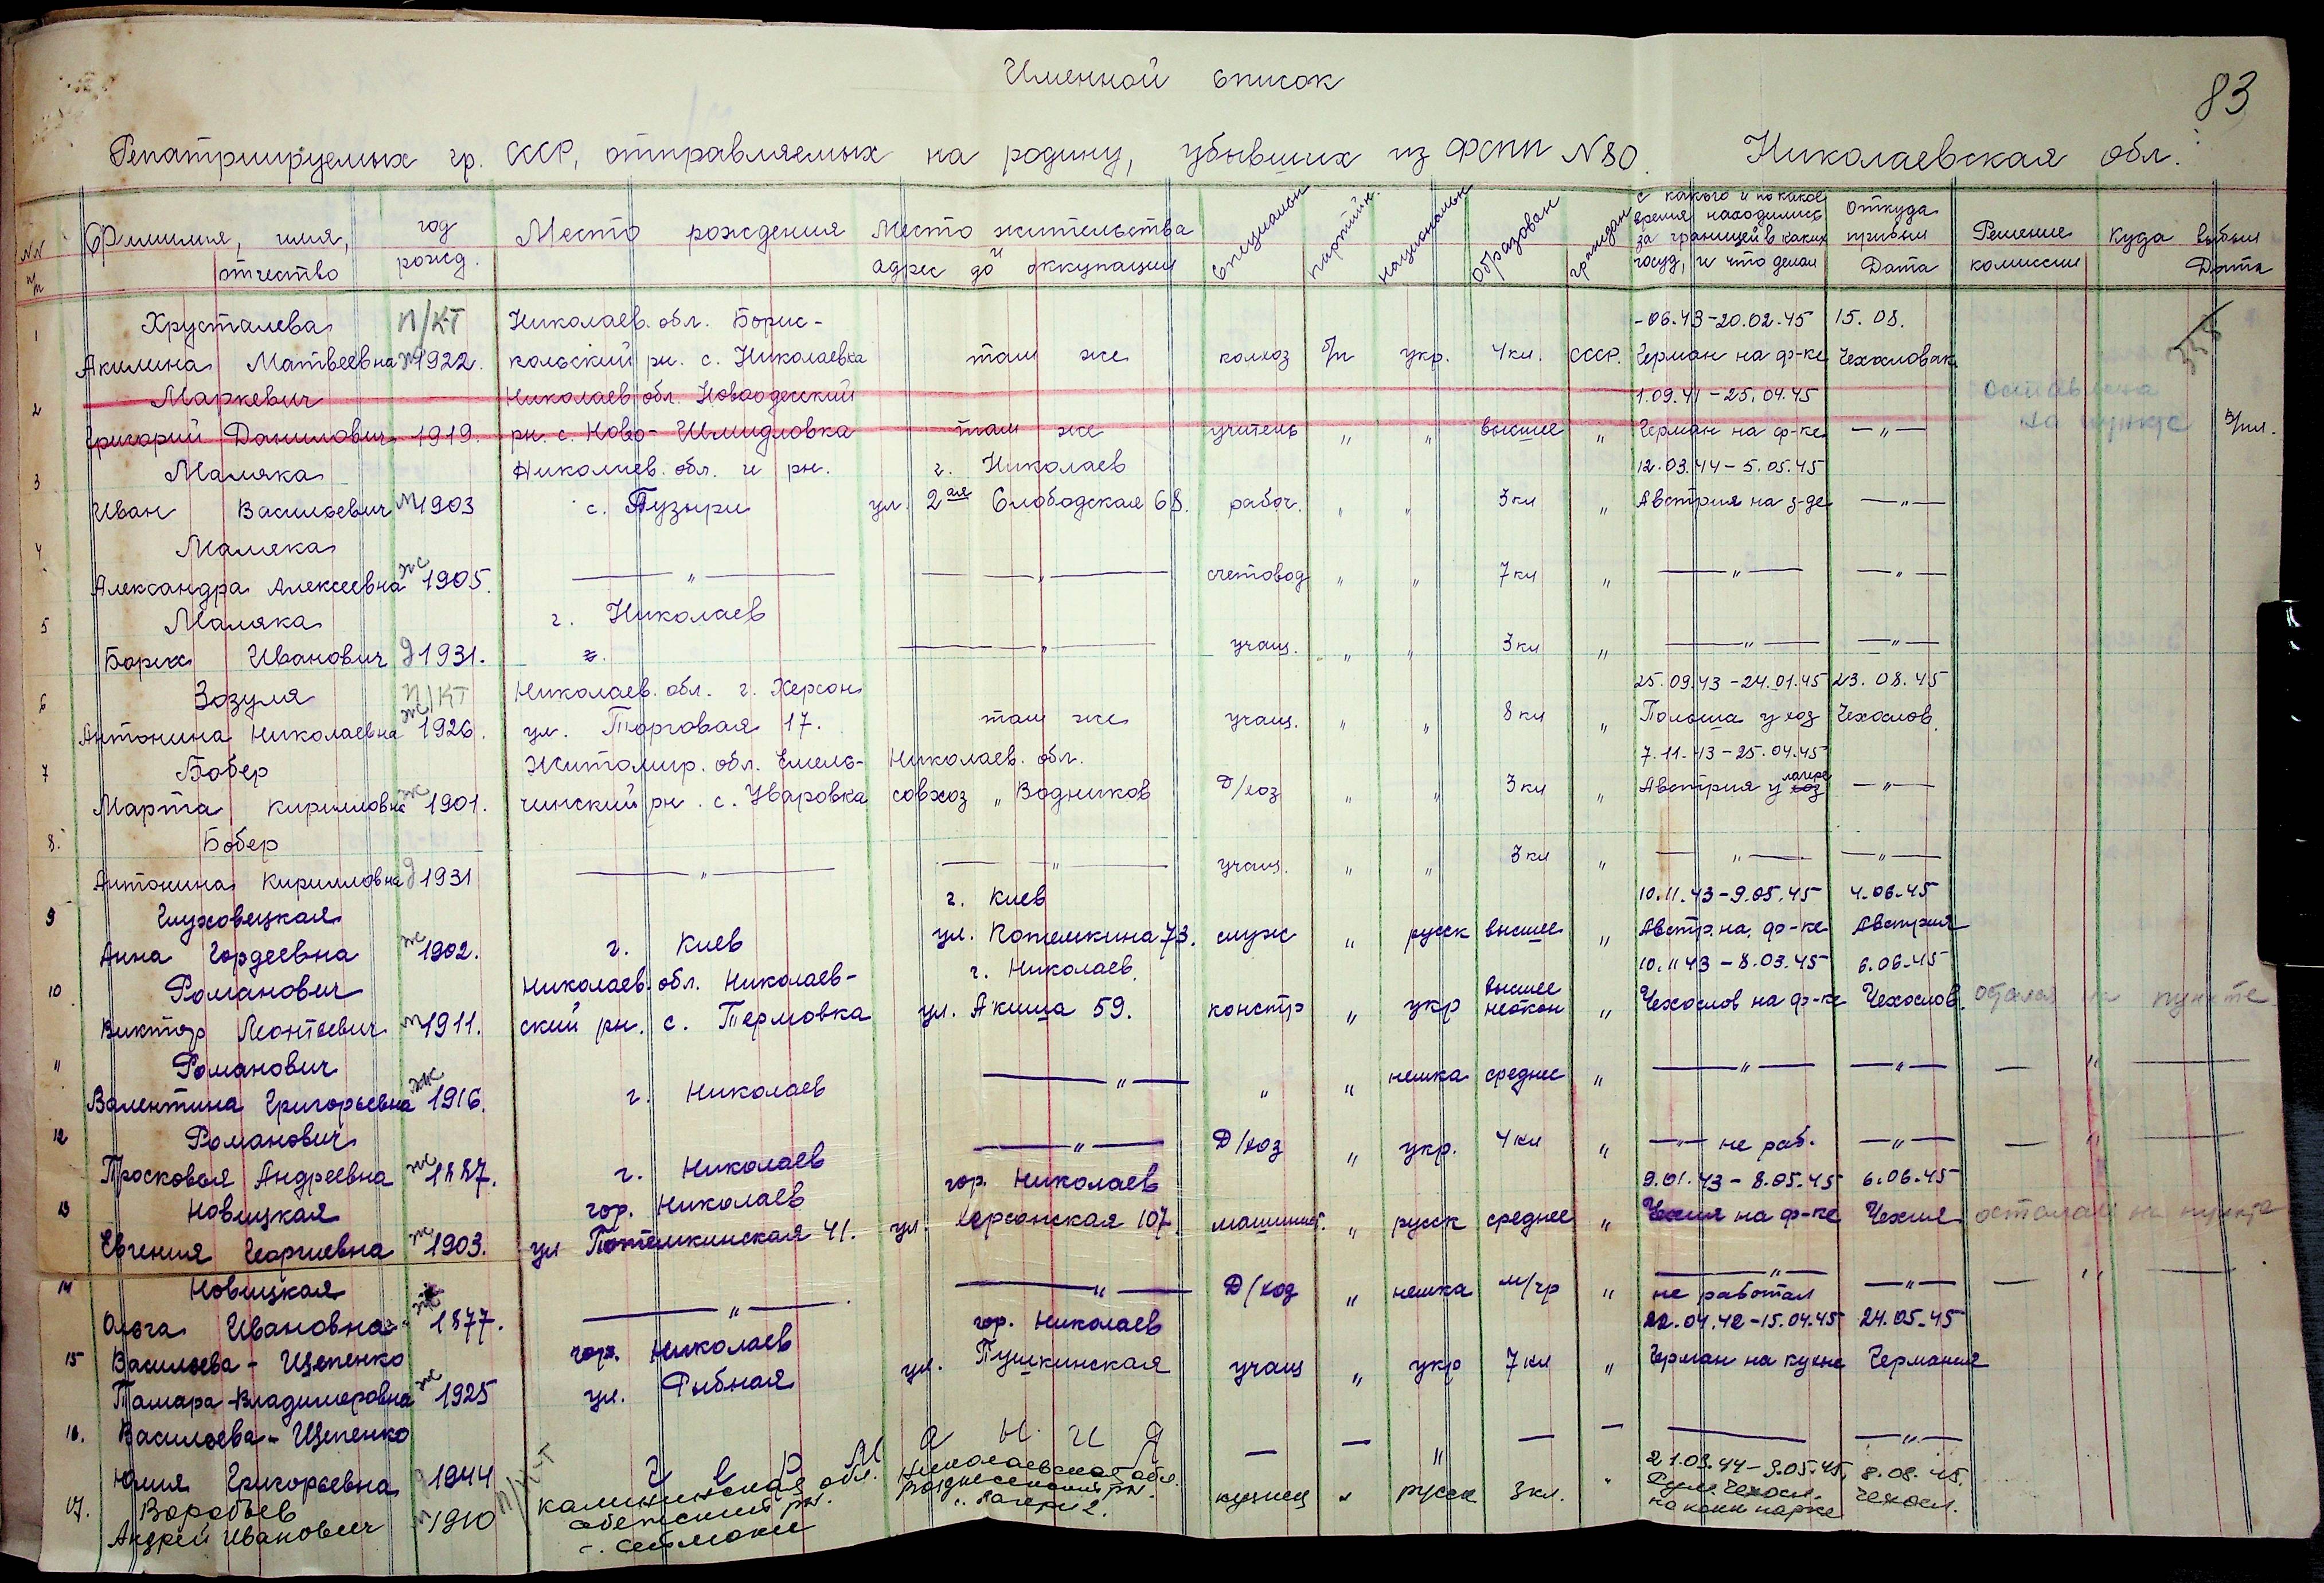 Именной список
83
Репатриируемых гр. СССР, отправляемых на родину, убывших из ФСПП N 80. Николаевская обл.
NN п/п
Фамилия, имя, отчество
год рожд.
Место рождения
Место жительства и адрес до оккупации
Специальн
партийн.
национальн
образован
граждан
с какого и по какое время находились за границей в каких госуд, и что делал
Откуда прибыл Дата
Решение комиссии
Куда выбыл Дата
1 Хрусталева П/КТ Николаев. обл. Борис- -06.43-20.02.45 15.08.
Акилина Матвеевна 1922. кольский рн. с. Николаевка там же колхоз б/п укр. 4 кл. СССР. Герман на ф-ке Чехословак
2 Маркевич Николаев. обл. Новоодесский 1.09.41-25.04.45 оставлена
Григорий Данилович 1919. рн. с. Ново-Шмидловка там же учитель " " высшее " Герман на ф-ке —"— на пункте
3 Маляка Николаев. обл. и рн. г. Николаев 12.03.44-5.05.45
Иван Васильевич м 1903 с. Пузыри ул. 2ая Слободская 68. рабоч. " " 3 кл " Австрия на з-де —"—
4 Маляка
Александра Алексеевна ж 1905. —"— —"— счетовод " " 7 кл " —"— —"—
5 Маляка г. Николаев
Борис Иванович д 1931. —"— учащ. " " 3 кл " —"— —"—
6 Зозуля П/КТ Николаев. обл. г. Херсон 25.09.43-24.01.45 23.08.45
Антонина Николаевна ж 1926. ул. Торговая 17. там же учащ. " " 8 кл " Польша у хоз Чехослов.
7 Бобер Житомир. обл. Емель- Николаев. обл. 7.11.43-25.04.45
Марта Кирилловна ж 1901. чинский рн. с. Уваровка совхоз „Водников Д/хоз " " 3 кл " Австрия у хоз лагере —"—
8. Бобер
Антонина Кирилловна д 1931 —"— —"— учащ. " " 3 кл " —"— —"—
9 Глуховецкая г. Киев 10.11.43-9.05.45 4.06.45
Анна Гордеевна ж 1902. г. Киев ул. Потемкина 73. служ " русск высшее " Австр. на ф-ке Австрия
10 Романович Николаев. обл. Николаев- г. Николаев. 10.11 43-8.03.45 6.06.45
Виктор Леонтьевич м 1911. ский рн. с. Терновка ул. Акима 59. констр " укр высшее неокон " Чехослов на ф-ке Чехослов. остался на пункте
11 Романович
Валентина Григорьевна ж 1916. г. Николаев —"— " " немка среднее " —"— —"— —"—
12 Романович
Просковья Андреевна ж 1887. г. Николаев —"— Д/хоз " укр. 4 кл " —"— не раб. —"— —"—
13 Новицкая гор. Николаев гор. Николаев 9.01.43-8.05.45 6.06.45
Евгения Георгиевна ж 1903. ул Потёмкинская 41. ул. Херсонская 107 машинист. " русск среднее " Чехия на ф-ке Чехия осталась на пункте
14 Новицкая
Ольга Ивановна ж 1877. —"— —"— Д/хоз " немка м/гр " —"— не работал —"— —"—
15 Васильева-Щепенко гор. Николаев гор. Николаев 22.04.42-15.04.45 24.05.45
Тамара Владимеровна ж 1925 ул. Рыбная ул. Пушкинская учащ " укр 7 кл " Герман на кухне Германия
16. Васильева-Щепенко
Юлия Григорьевна 1944 Г е р м а н и я — — " — — — —"—
17. Воробьев П/КТ Калининская обл. Николаевская обл. 21.03.44-9.05.45 8.08.45.
Андрей Иванович 1910 рн. Лагери 2. кузнец " русск 3 кл. " Рум. Чехосл. на конн парке Чехосл.